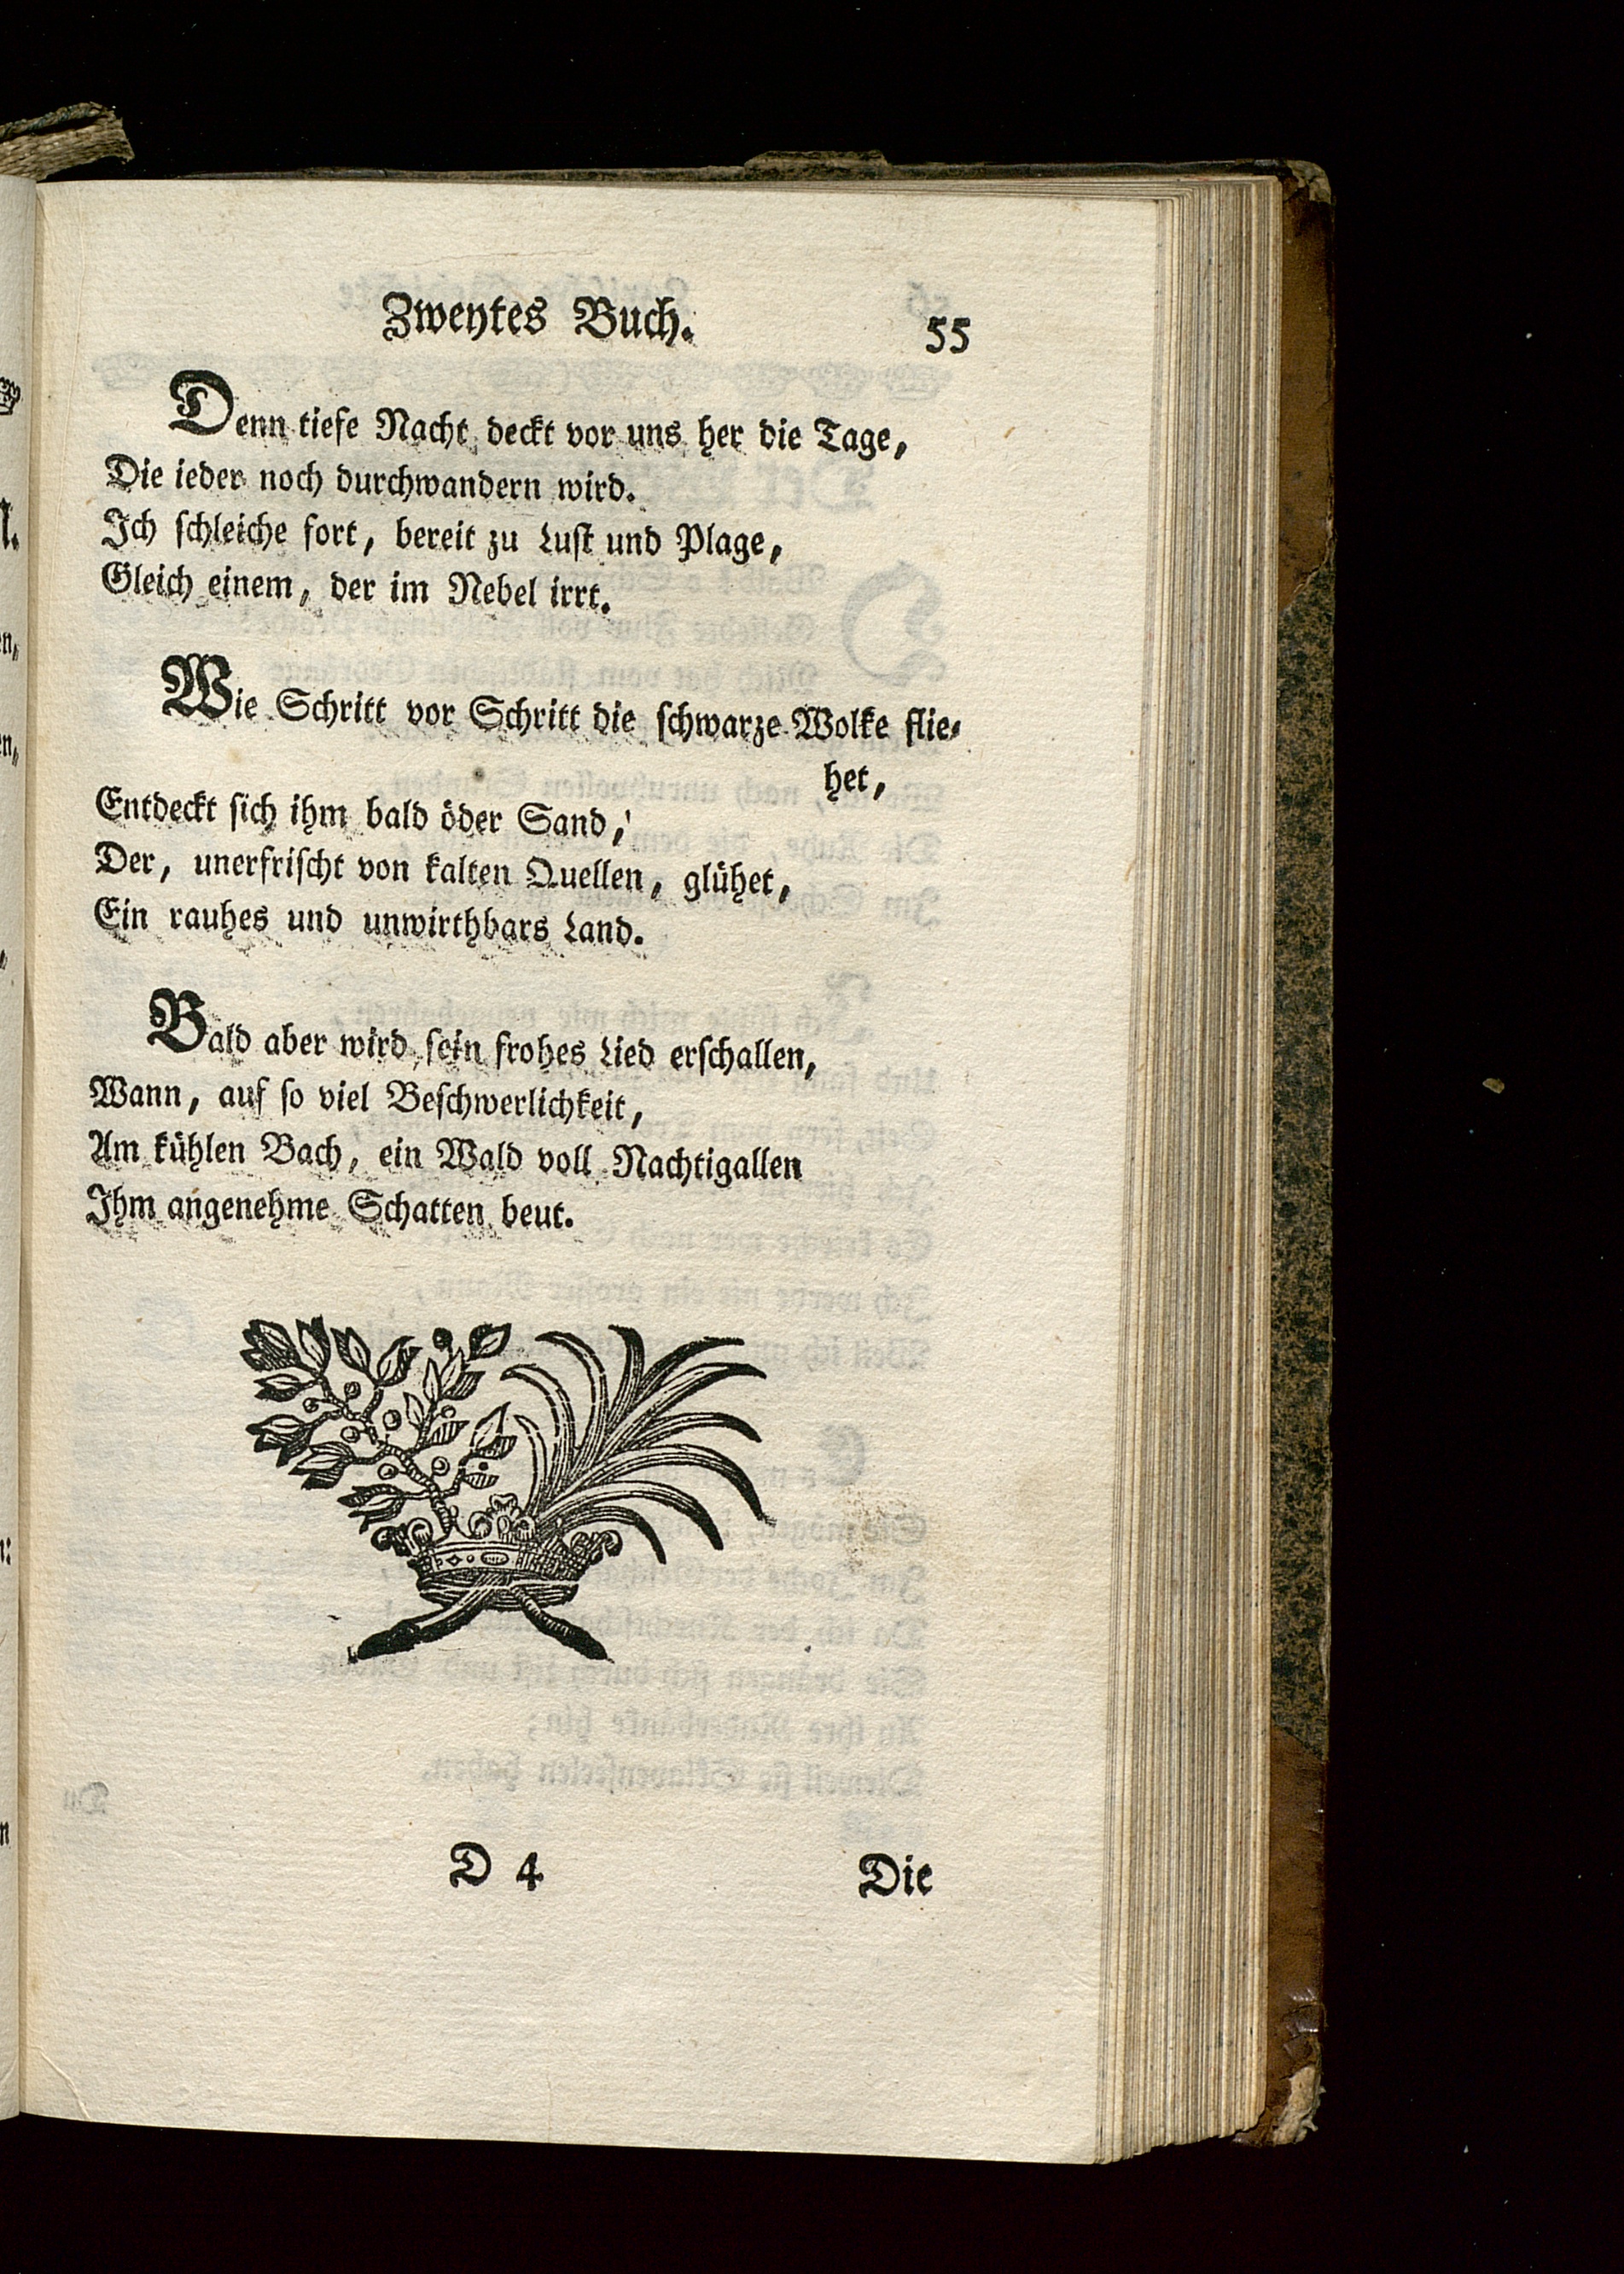 Zweytes Buch.
55
Denn tiefe Nacht deckt vor uns her die Tage,
Die ieder noch durchwandern wird.
Ich ſchleiche fort, bereit zu Luſt und Plage,
Gleich einem, der im Nebel irrt.
Wie Schritt vor Schritt die ſchwarze Wolke flie-
het,
Entdeckt ſich ihm bald öder Sand,
Der, unerfriſcht von kalten Quellen, glühet,
Ein rauhes und unwirthbars Land.
Bald aber wird ſein frohes Lied erſchallen,
Wann, auf ſo viel Beſchwerlichkeit,
Am kühlen Bach, ein Wald voll Nachtigallen
Ihm angenehme Schatten beut.
D 4
Die